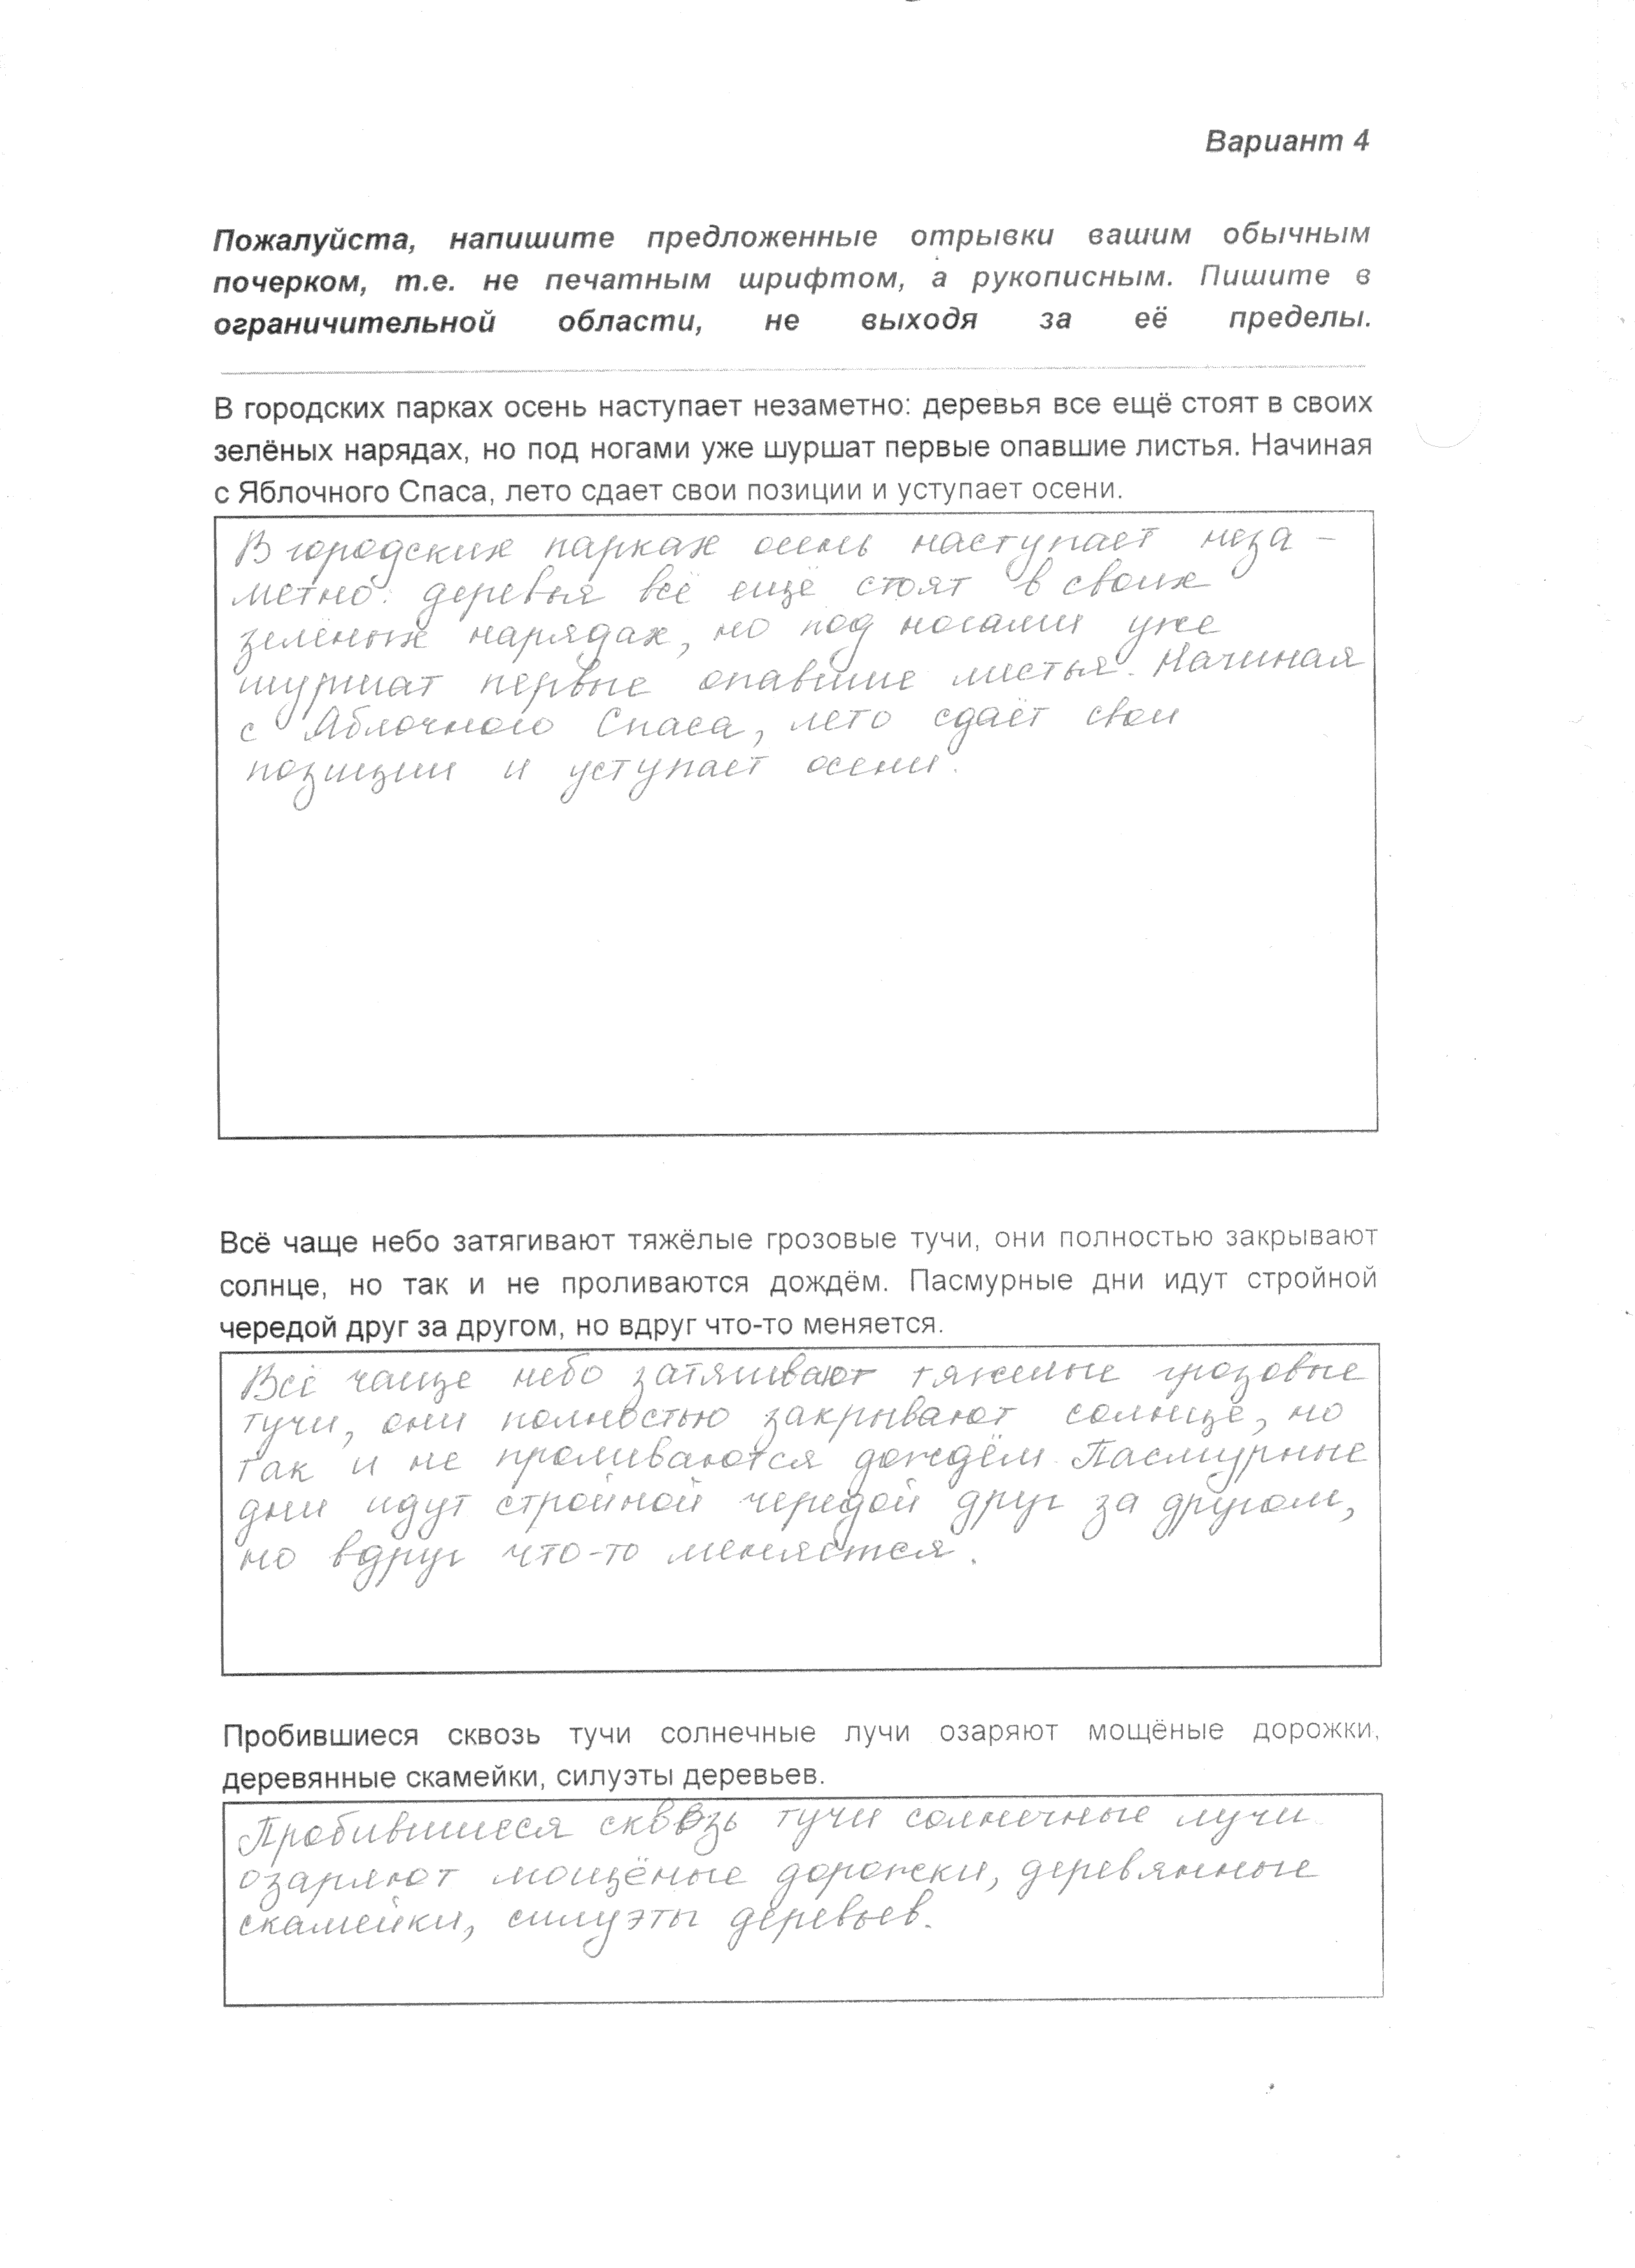 Вариант 4
Пожалуйста, напишите предложенные отрывки вашим обычным
почерком, т.е. не печатным шрифтом, а рукописным. Пишите в
ограничительной области, не выходя за её пределы.
В городских парках осень наступает незаметно: деревья все ещё стоят в своих
зелёных нарядах, но под ногами уже шуршат первые опавшие листья. Начиная
с Яблочного Спаса, лето сдает свои позиции и уступает осени.
В городских парках осень наступает неза-
метно: деревья всё ещё стоят в своих
зелёных нарядах, но под ногами уже
шуршат первые опавшие листья. Начиная
с Яблочного Спаса, лето сдаёт свои
позиции и уступает осени.
Всё чаще небо затягивают тяжёлые грозовые тучи, они полностью закрывают
солнце, но так и не проливаются дождём. Пасмурные дни идут стройной
чередой друг за другом, но вдруг что-то меняется.
Всё чаще небо затягивают тяжелые грозовые
тучи, они полностью закрывают солнце, но
так и не проливаются дождём. Пасмурные
дни идут стройной чередой друг за другом,
но вдруг что-то меняется.
Пробившиеся сквозь тучи солнечные лучи озаряют мощёные дорожки,
деревянные скамейки, силуэты деревьев.
Пробившиеся сквозь тучи солнечные лучи
озаряют мощёные дорожки, деревянные
скамейки, силуэты деревьев.